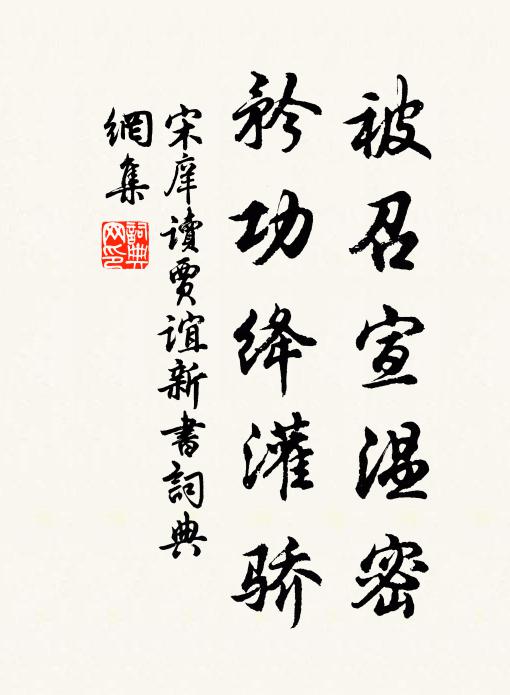 被召宣温密
矜功绛灌骄
宋庠讀賈誼新書詞典
網集
詞典网印